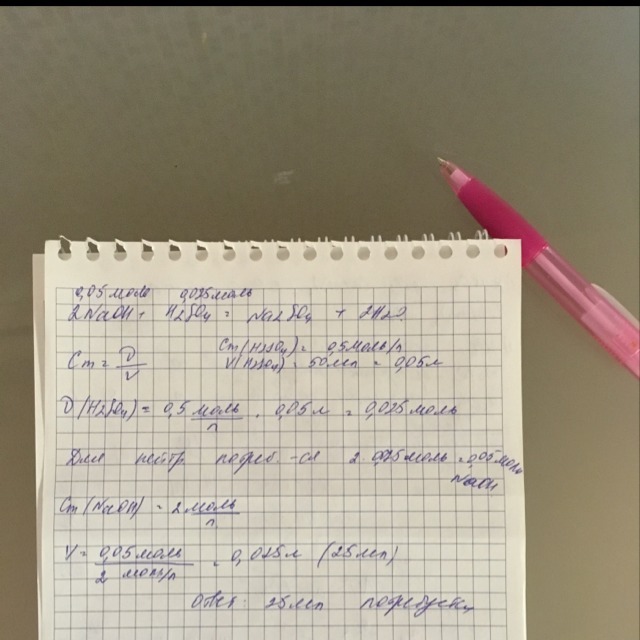 0,05 моль 0,025 моль
2NaOH + H2SO4 = Na2SO4 + 2H2O
Cm(H2SO4) = 0,5 моль/л
Cm = υ/V
V(H2SO4) = 50 мл = 0,05 л
υ(H2SO4) = 0,5 моль/л · 0,05 л = 0,025 моль
Для нейтр потреб-ся 2·0,025 моль = 0,05 моль
NaOH
Cm(NaOH) = 2 моль/л
V = 0,05 моль / 2 моль/л = 0,025 л (25 мл)
Ответ: 25 мл потребуется